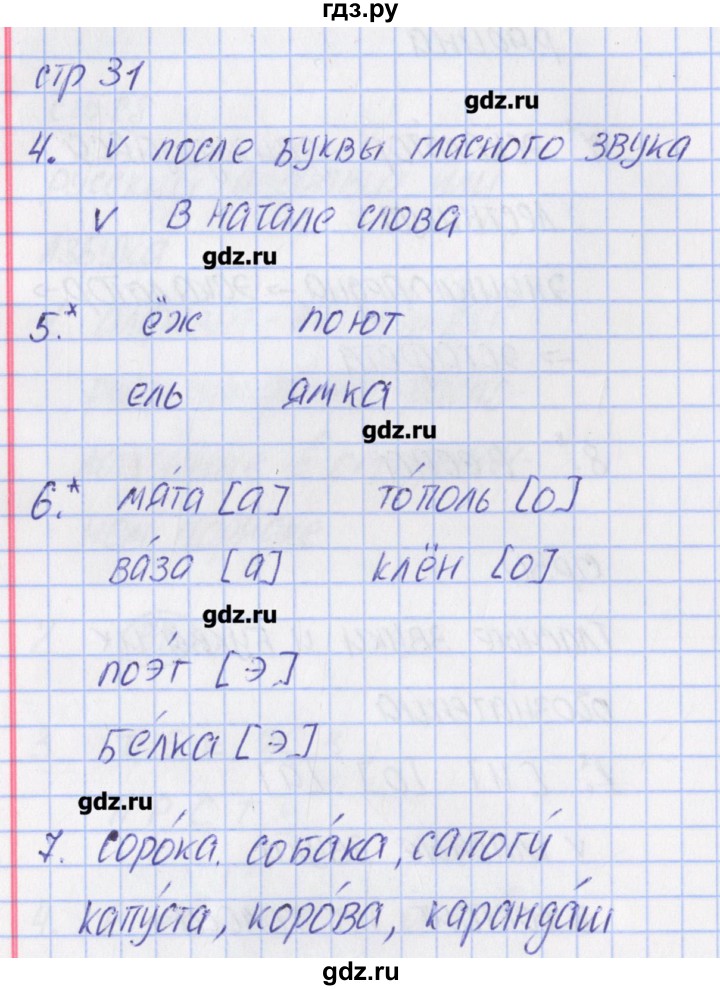 гдз.ру
стр 31
gdz.ru
4. v после буквы гласного звука
v В начале слова
gdz.ru
5.* ёж поют
ель ямка
gdz.ru
6.* мя́та [а] то́поль [о]
ва́за [а] клён [о]
gdz.ru
поэ́т [э]
бе́лка [э]
gdz.ru
7. соро́ка. соба́ка, сапоги́
капу́ста, коро́ва, каранда́ш
gdz.ru